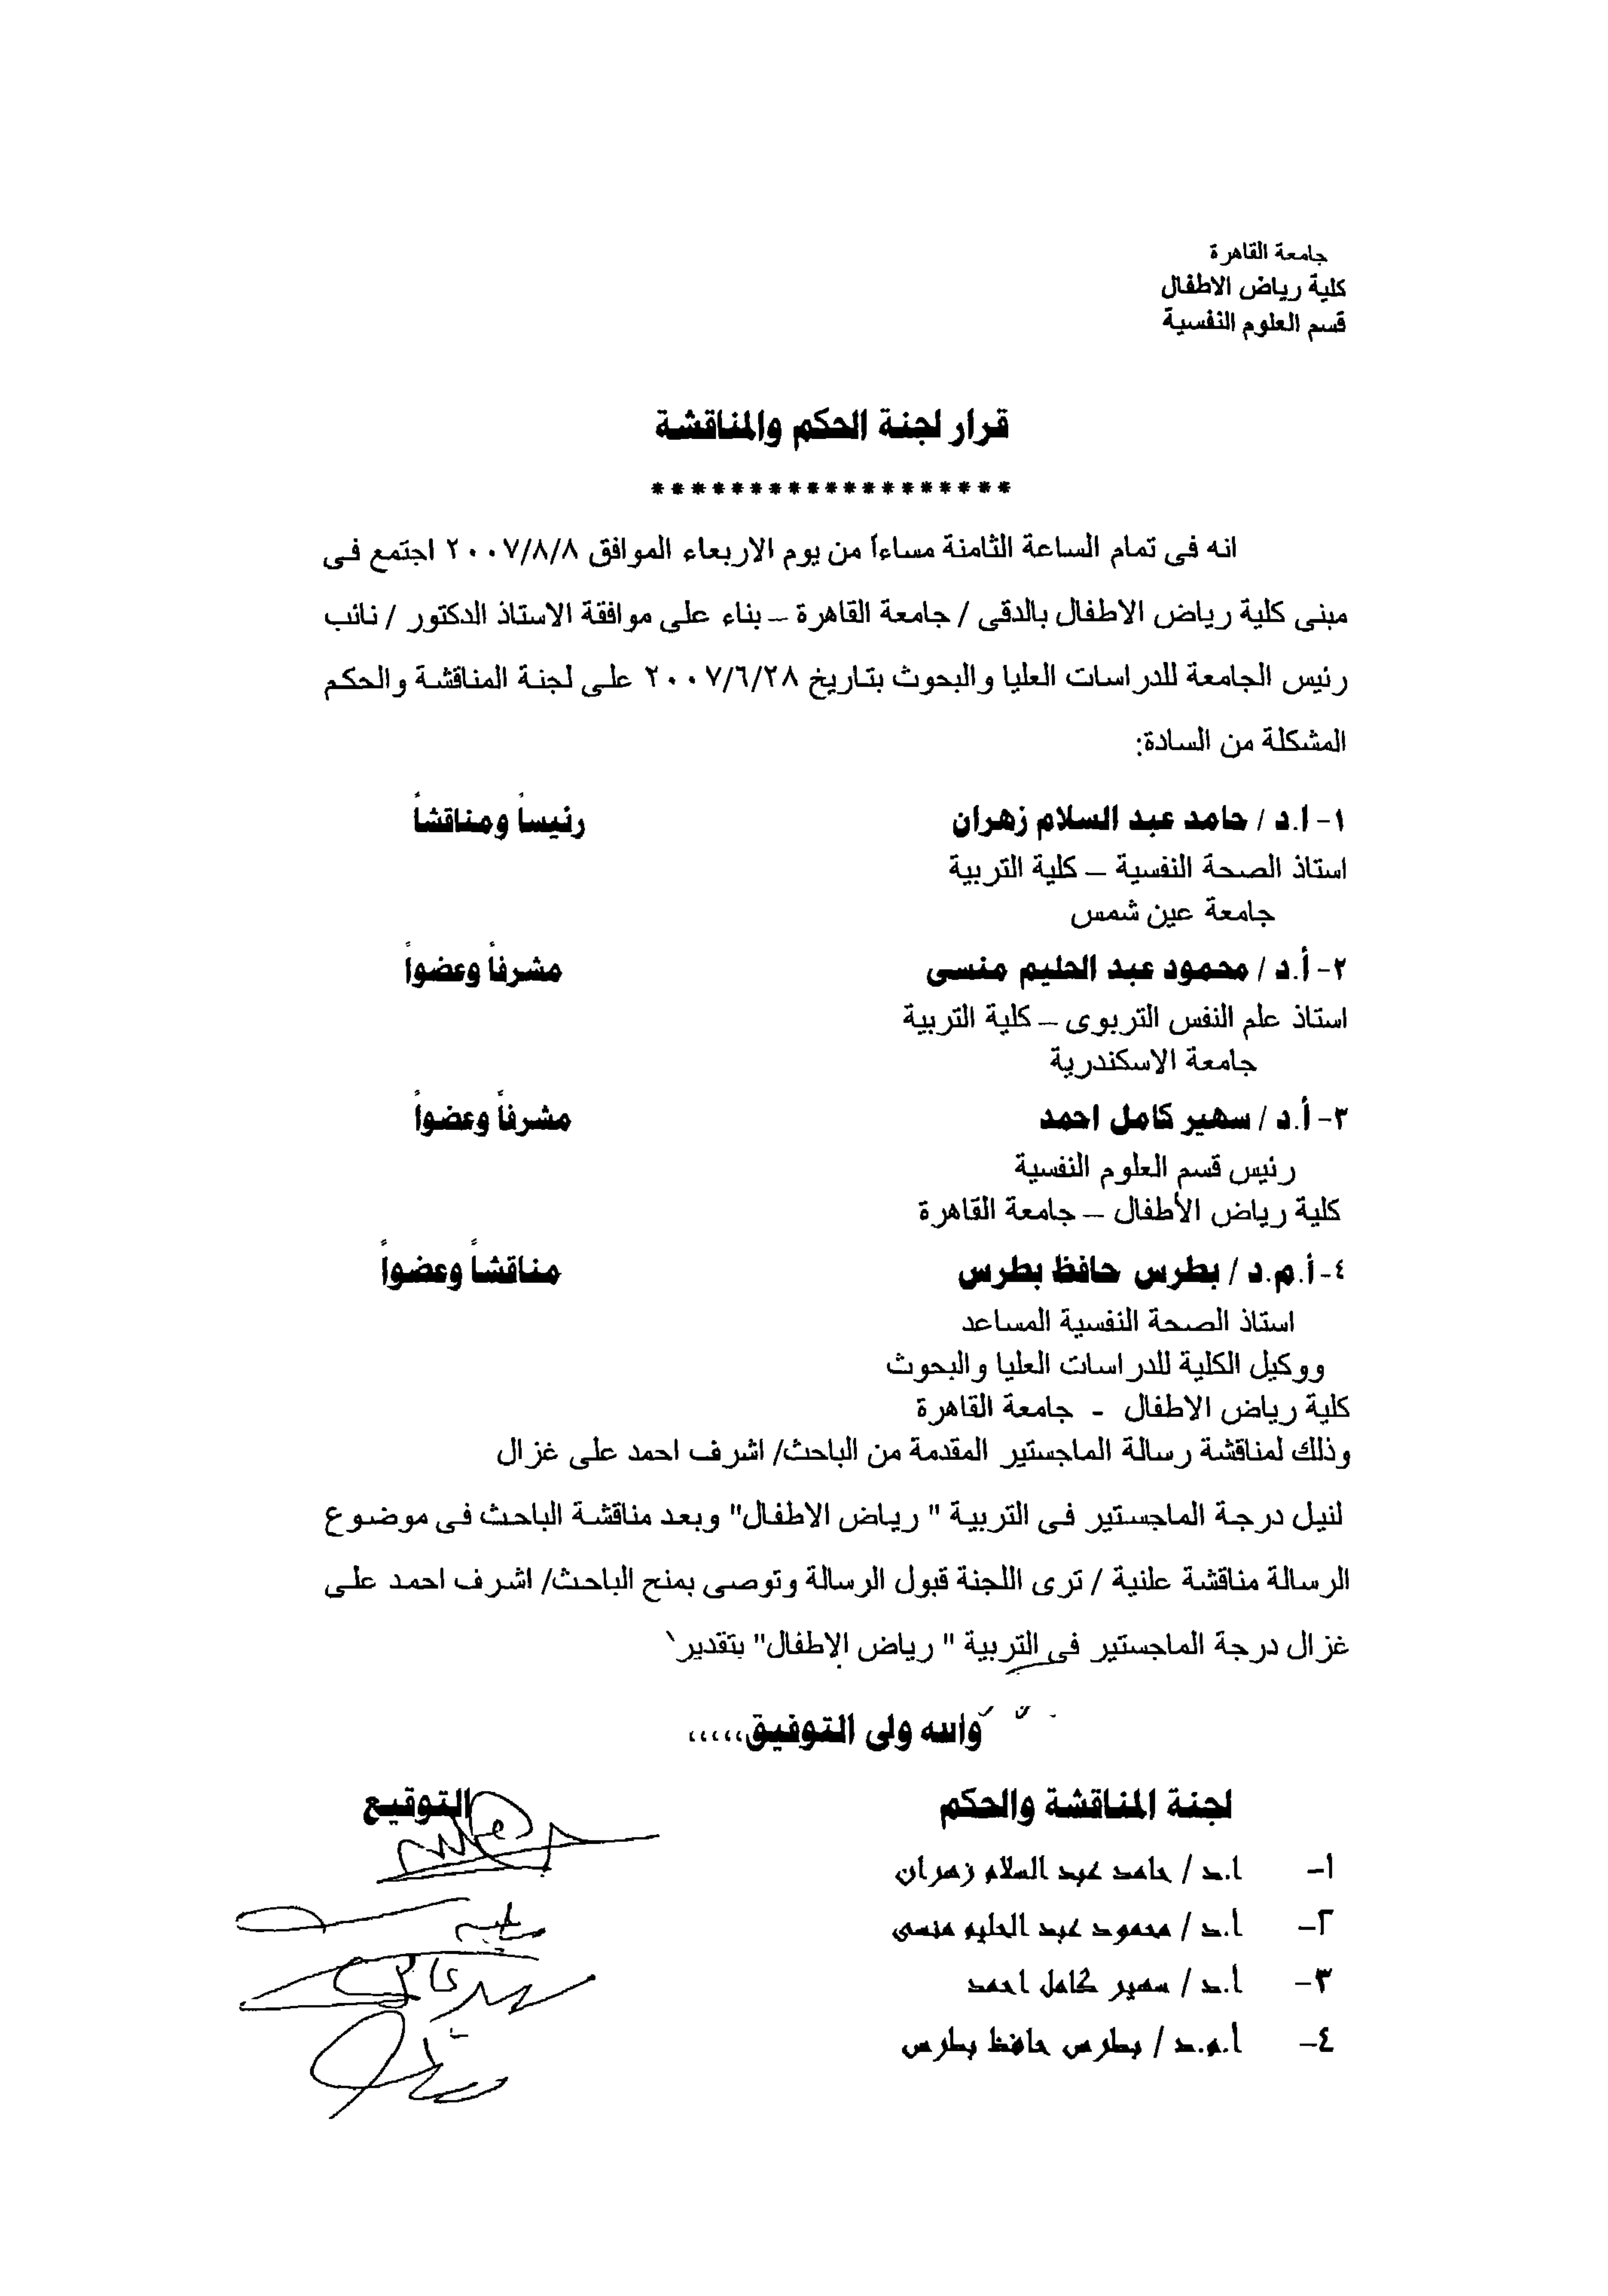 جامعة القاهرة
كلية رياض الاطفال
قسم العلوم النفسية
قرار لجنة الحكم والمناقشة
*******************
انه فى تمام الساعة الثامنة مساءاً من يوم الاربعاء الموافق ٢٠٠٧/٨/٨ اجتمع فى
مبنى كلية رياض الاطفال بالدقى / جامعة القاهرة – بناء على موافقة الاستاذ الدكتور / نائب
رئيس الجامعة للدراسات العليا والبحوث بتاريخ ٢٠٠٧/٦/٢٨ على لجنة المناقشة والحكم
المشكلة من السادة:
١- ا.د / حامد عبد السلام زهران رئيساً ومناقشاً
استاذ الصحة النفسية – كلية التربية
جامعة عين شمس
٢- أ.د / محمود عبد الحليم منسى مشرفاً وعضواً
استاذ علم النفس التربوى – كلية التربية
جامعة الاسكندرية
٣- أ.د / سهير كامل احمد مشرفاً وعضواً
رئيس قسم العلوم النفسية
كلية رياض الأطفال – جامعة القاهرة
٤- أ.م.د / بطرس حافظ بطرس مناقشاً وعضواً
استاذ الصحة النفسية المساعد
ووكيل الكلية للدراسات العليا والبحوث
كلية رياض الاطفال - جامعة القاهرة
وذلك لمناقشة رسالة الماجستير المقدمة من الباحث/ اشرف احمد على غزال
لنيل درجة الماجستير فى التربية " رياض الاطفال" وبعد مناقشة الباحث فى موضوع
الرسالة مناقشة علنية / ترى اللجنة قبول الرسالة وتوصى بمنح الباحث/ اشرف احمد على
غزال درجة الماجستير فى التربية " رياض الاطفال" بتقدير
والله ولى التوفيق،،،،،
لجنة المناقشة والحكم التوقيع
١- ا.د / حامد عبد السلام زهران
٢- أ.د / محمود عبد الحليم منسى
٣- أ.د / سهير كامل احمد
٤- أ.م.د / بطرس حافظ بطرس